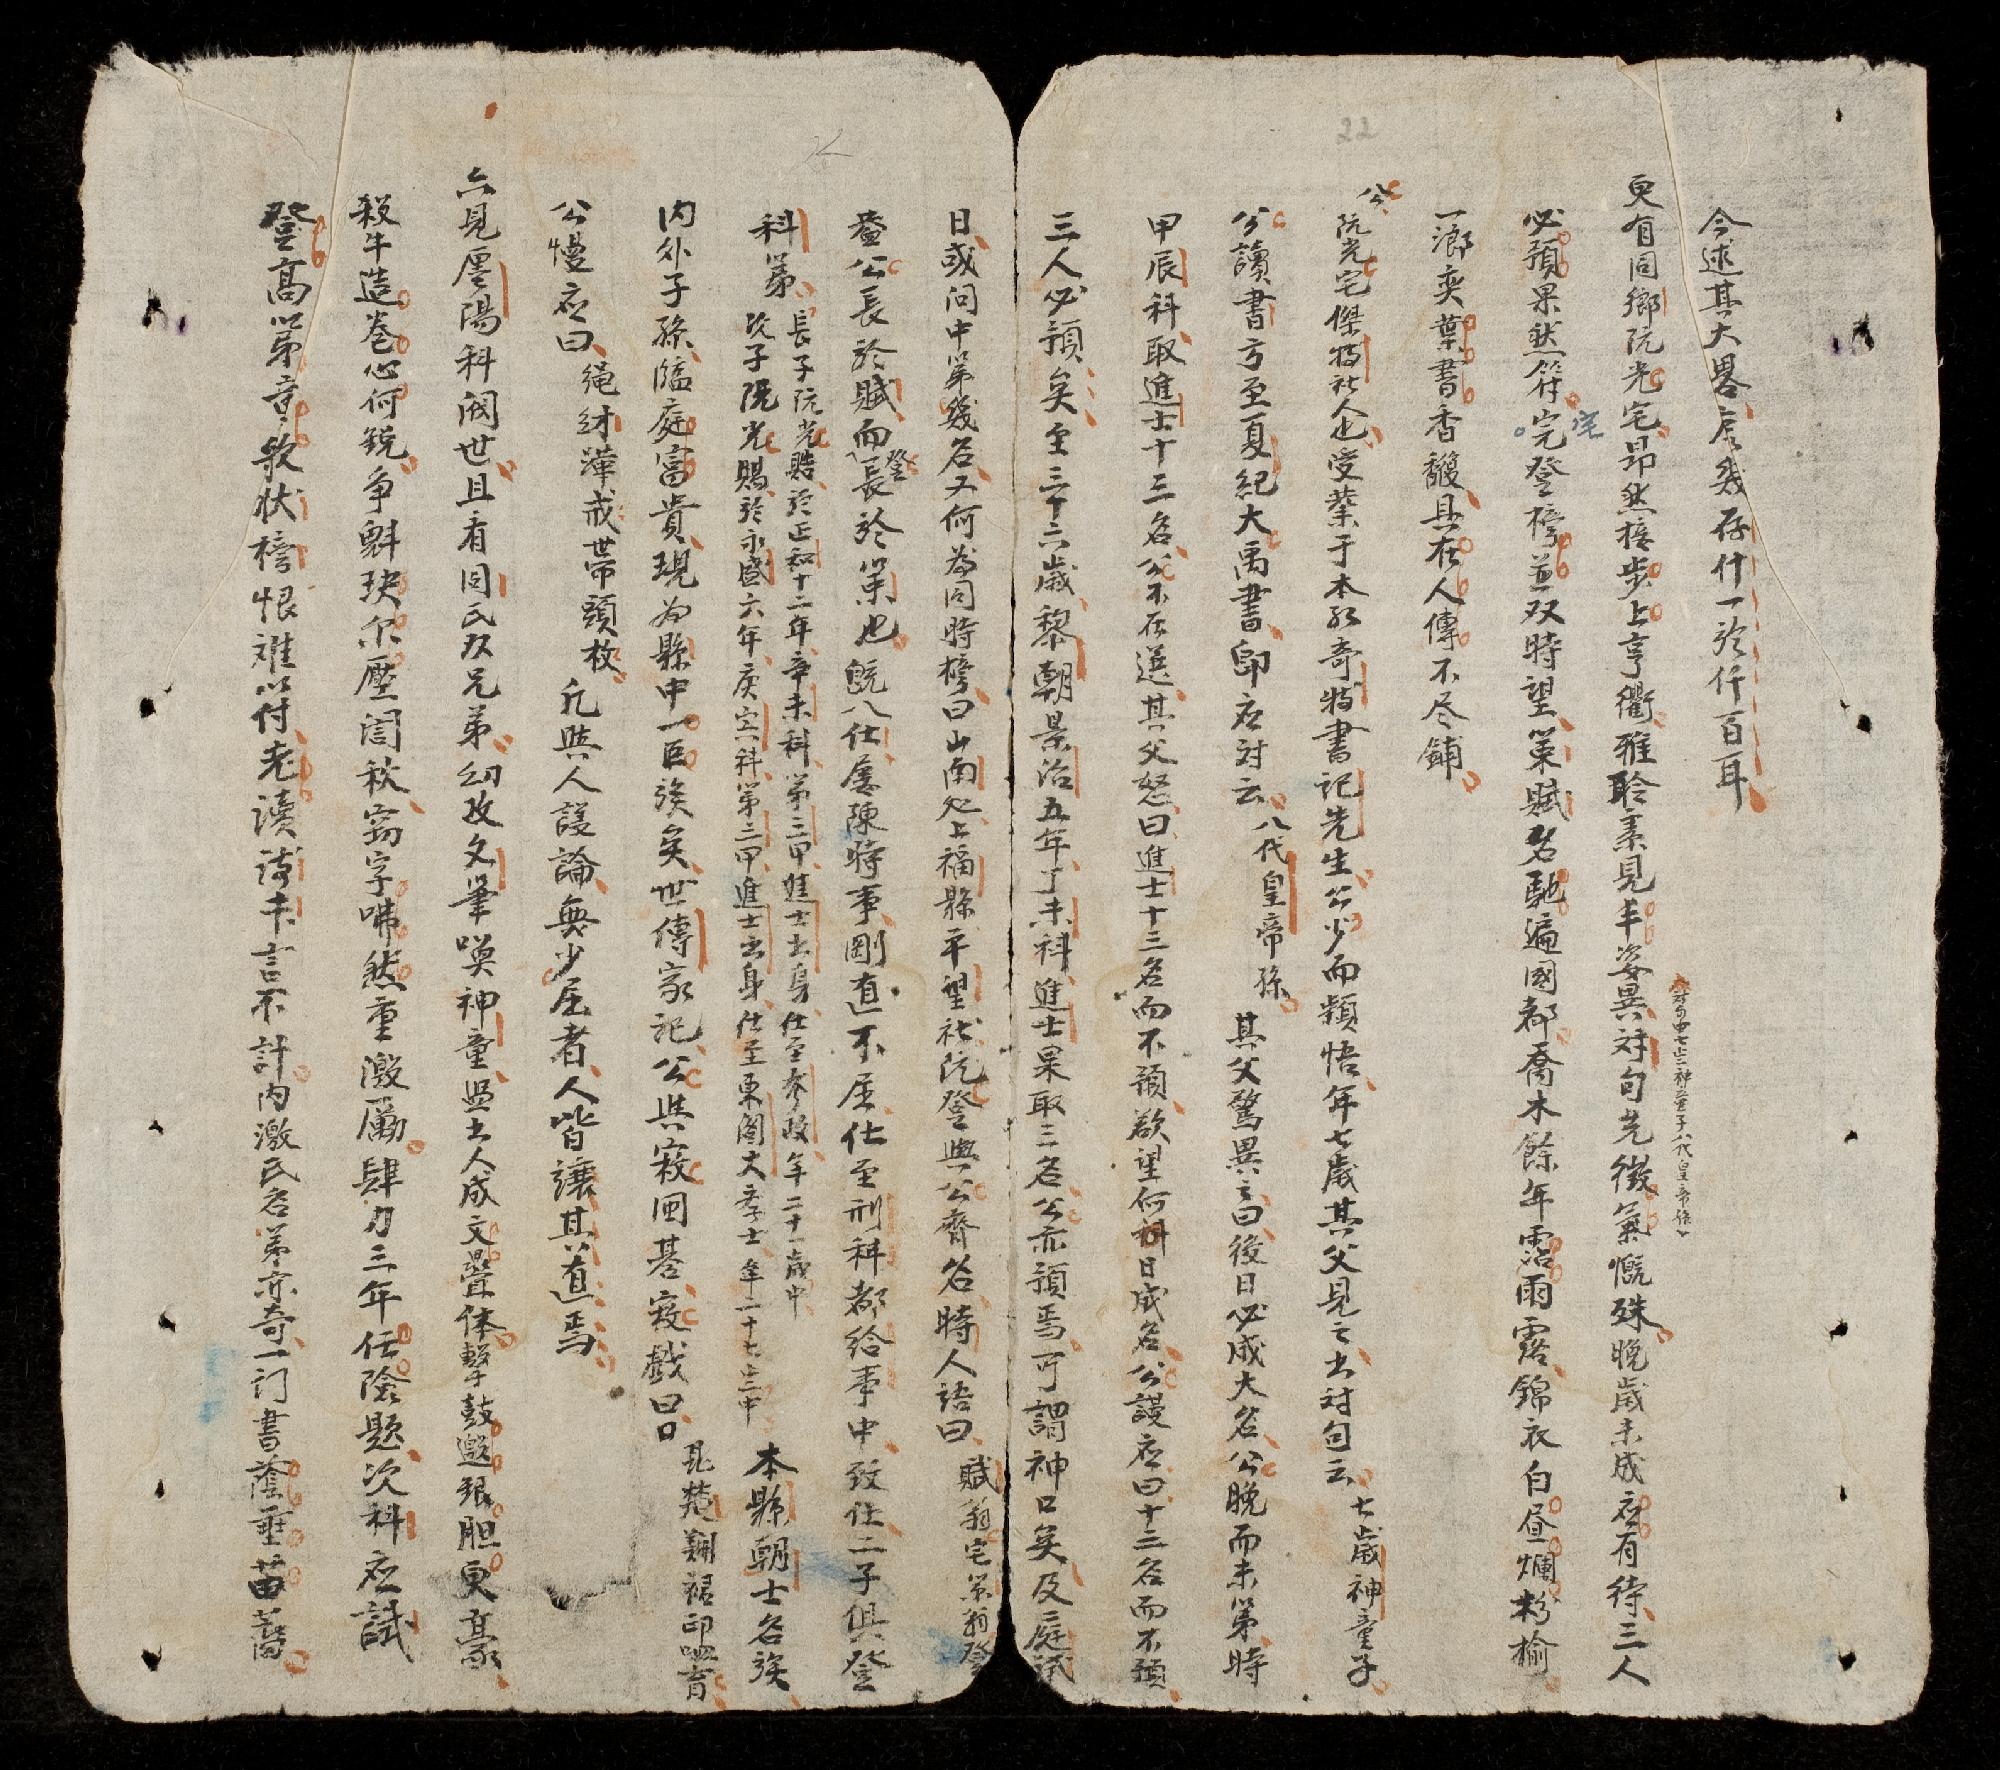 22
今述其大畧庶幾存什一於仟百耳
更有同鄉阮光宅昂然接步上亨衢雅聆素見丰姿異対句先徵氣慨殊晚歲未成应有待三人
対句由七歲神童子八代皇帝孫
必預果然符完登榜並双時望策賦名馳遍國都喬木餘年霑雨露錦衣白昼爛枌榆
宅
一鄉奕葉書香馥具在人傳不尽鋪
公阮光宅傑特社人也受業于本社奇特書記先生公少而穎悟年七歲其父見之出対句云七歲神童子
公讀書方至夏紀大禹書即应対云八代皇帝孫其父驚異之曰後日必成大名公晚而未第時
甲辰科取進士十三名公不在選其父怒曰進士十三名而不預欲望何科日成名公謾应曰十三名而不預
三人必預矣至三十六歲黎朝景治五年丁未科進士果取三名公亦預焉可謂神口矣及庭試
日或问中第幾名又何為同時榜曰山南处上福縣平望社阮登與公齊名時人語曰賦翁宅策翁登
蓋公長於賦而登長於策也既入仕屡陳時事剛直不屈仕至刑科都給事中致仕二子俱登
科第長子阮光賠於正和十二年辛未科第三甲進士出身仕至參政年二十一歲中
次子阮光賜於永盛六年庚寅科第三甲進士出身仕至東阁大孛士年二十七歲中
本縣朝士名族
内外子孫臨庭富貴現为縣中一巨族矣世傳家記公與寇闽基寇戲曰昆楚翔裙印𠰺育
公慢应曰繩紂滜戒世帶頭枚凡與人議論無少屈者人皆讓其直焉
六見厚陽科阀世且看同氏双兄弟幼攻文筆嘆神童興士人成文疊体擊鼓邀銀胆更豪
殺牛造卷心何銳争魁玦尔壓闾秋窃字咈然重激勵肆力三年任險题次科应試
登高以第章欤状榜恨难以付老瀆诗未言不計内激民名第亦奇一门書蔭垂苗裔